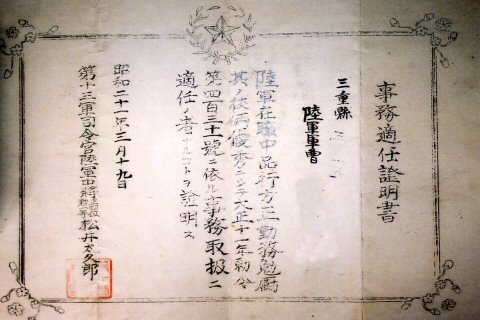 事務適任證明書
三重縣
陸軍軍曹
陸軍在職中品行方正勤務勉厲
其ノ技倆優秀ニシテ大正十一年勅令
第四百三十一號ニ依ル事務取扱ニ
適任ノ者ナルコトヲ證明ス
昭和二十一年三月十九日
第十三軍司令官陸軍中將 松井太久郎